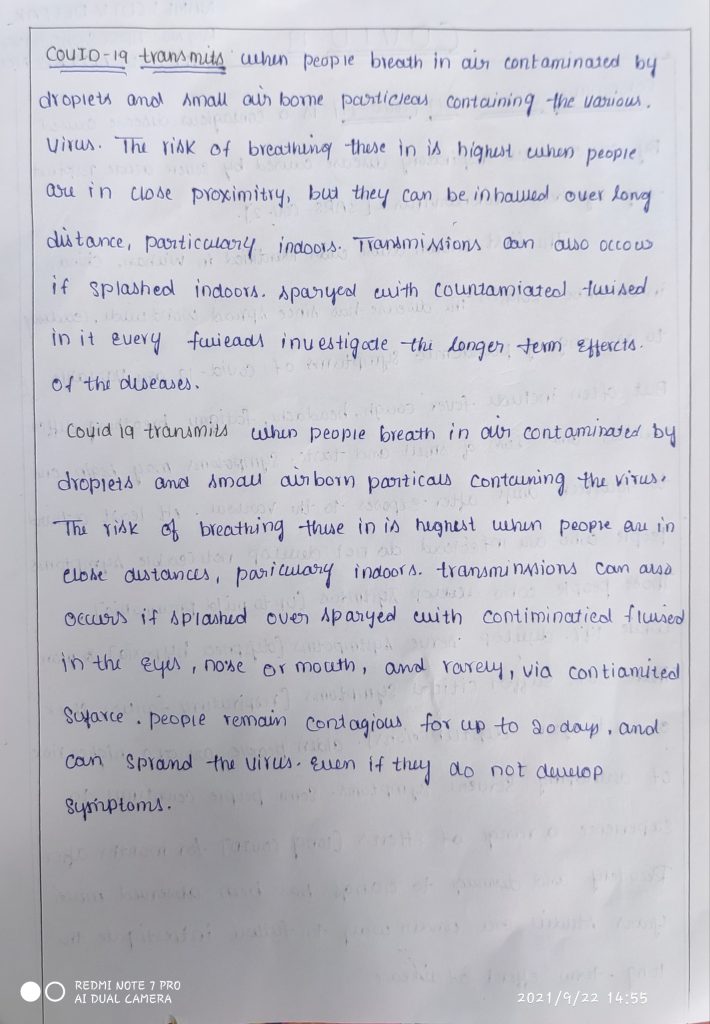 COVID-19 transmits when people breath in air contaminated by
droplets and small air borne particleas containing the various.
Virus. The risk of breathing these in is highest when people
are in close proximitry, but they can be inhalled over long
distance, particulary indoors. Transmissions can also occous
if splashed indoors. sparyed with countamiated
in it every investigate the longer term effercts.
of the diseases.
Covid 19 transmits when people breath in air contaminated by
droplets and small airborn particals containing the virus.
The risk of breathing these in is heghest when people are in
close distances, paricularly indoors. transminssions can also
occurs if splashed over sparyed with contiminatied fluised
in the eyes, nose or mouth, and rarely, via contiamited
Sufarce. people remain contagious for up to 20 days, and
can sprand the virus. even if they do not develop
symptoms.
REDMI NOTE 7 PRO
AI DUAL CAMERA
2021/9/22 14:55